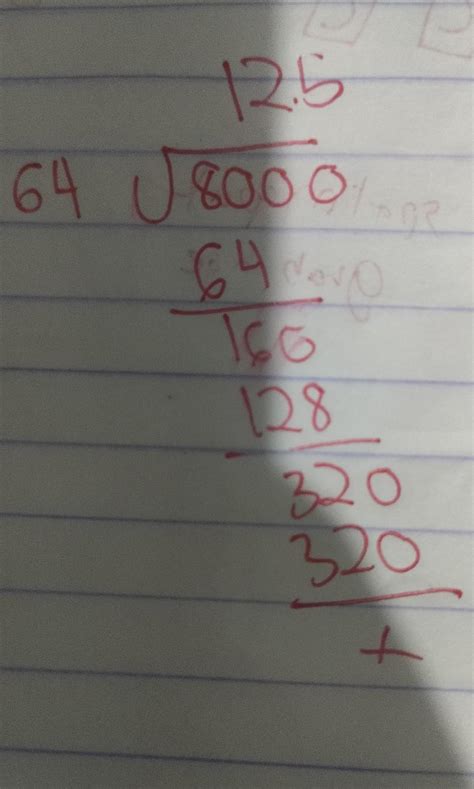 12.5
64 √8000
64
160
128
320
320
+